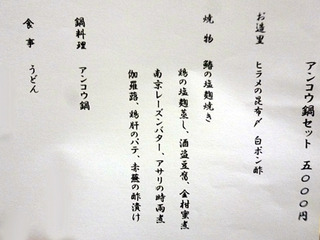 アンコウ鍋セット 五〇〇〇円
お造里 ヒラメの昆布〆 白ポン酢
焼物 鰆の塩麹焼き
鶏の塩麹蒸し、酒盗豆腐、金柑蜜煮
南京レーズンバター、アサリの時雨煮
伽羅蕗、鶏肝のパテ、赤蕪の酢漬け
鍋料理 アンコウ鍋
食事 うどん